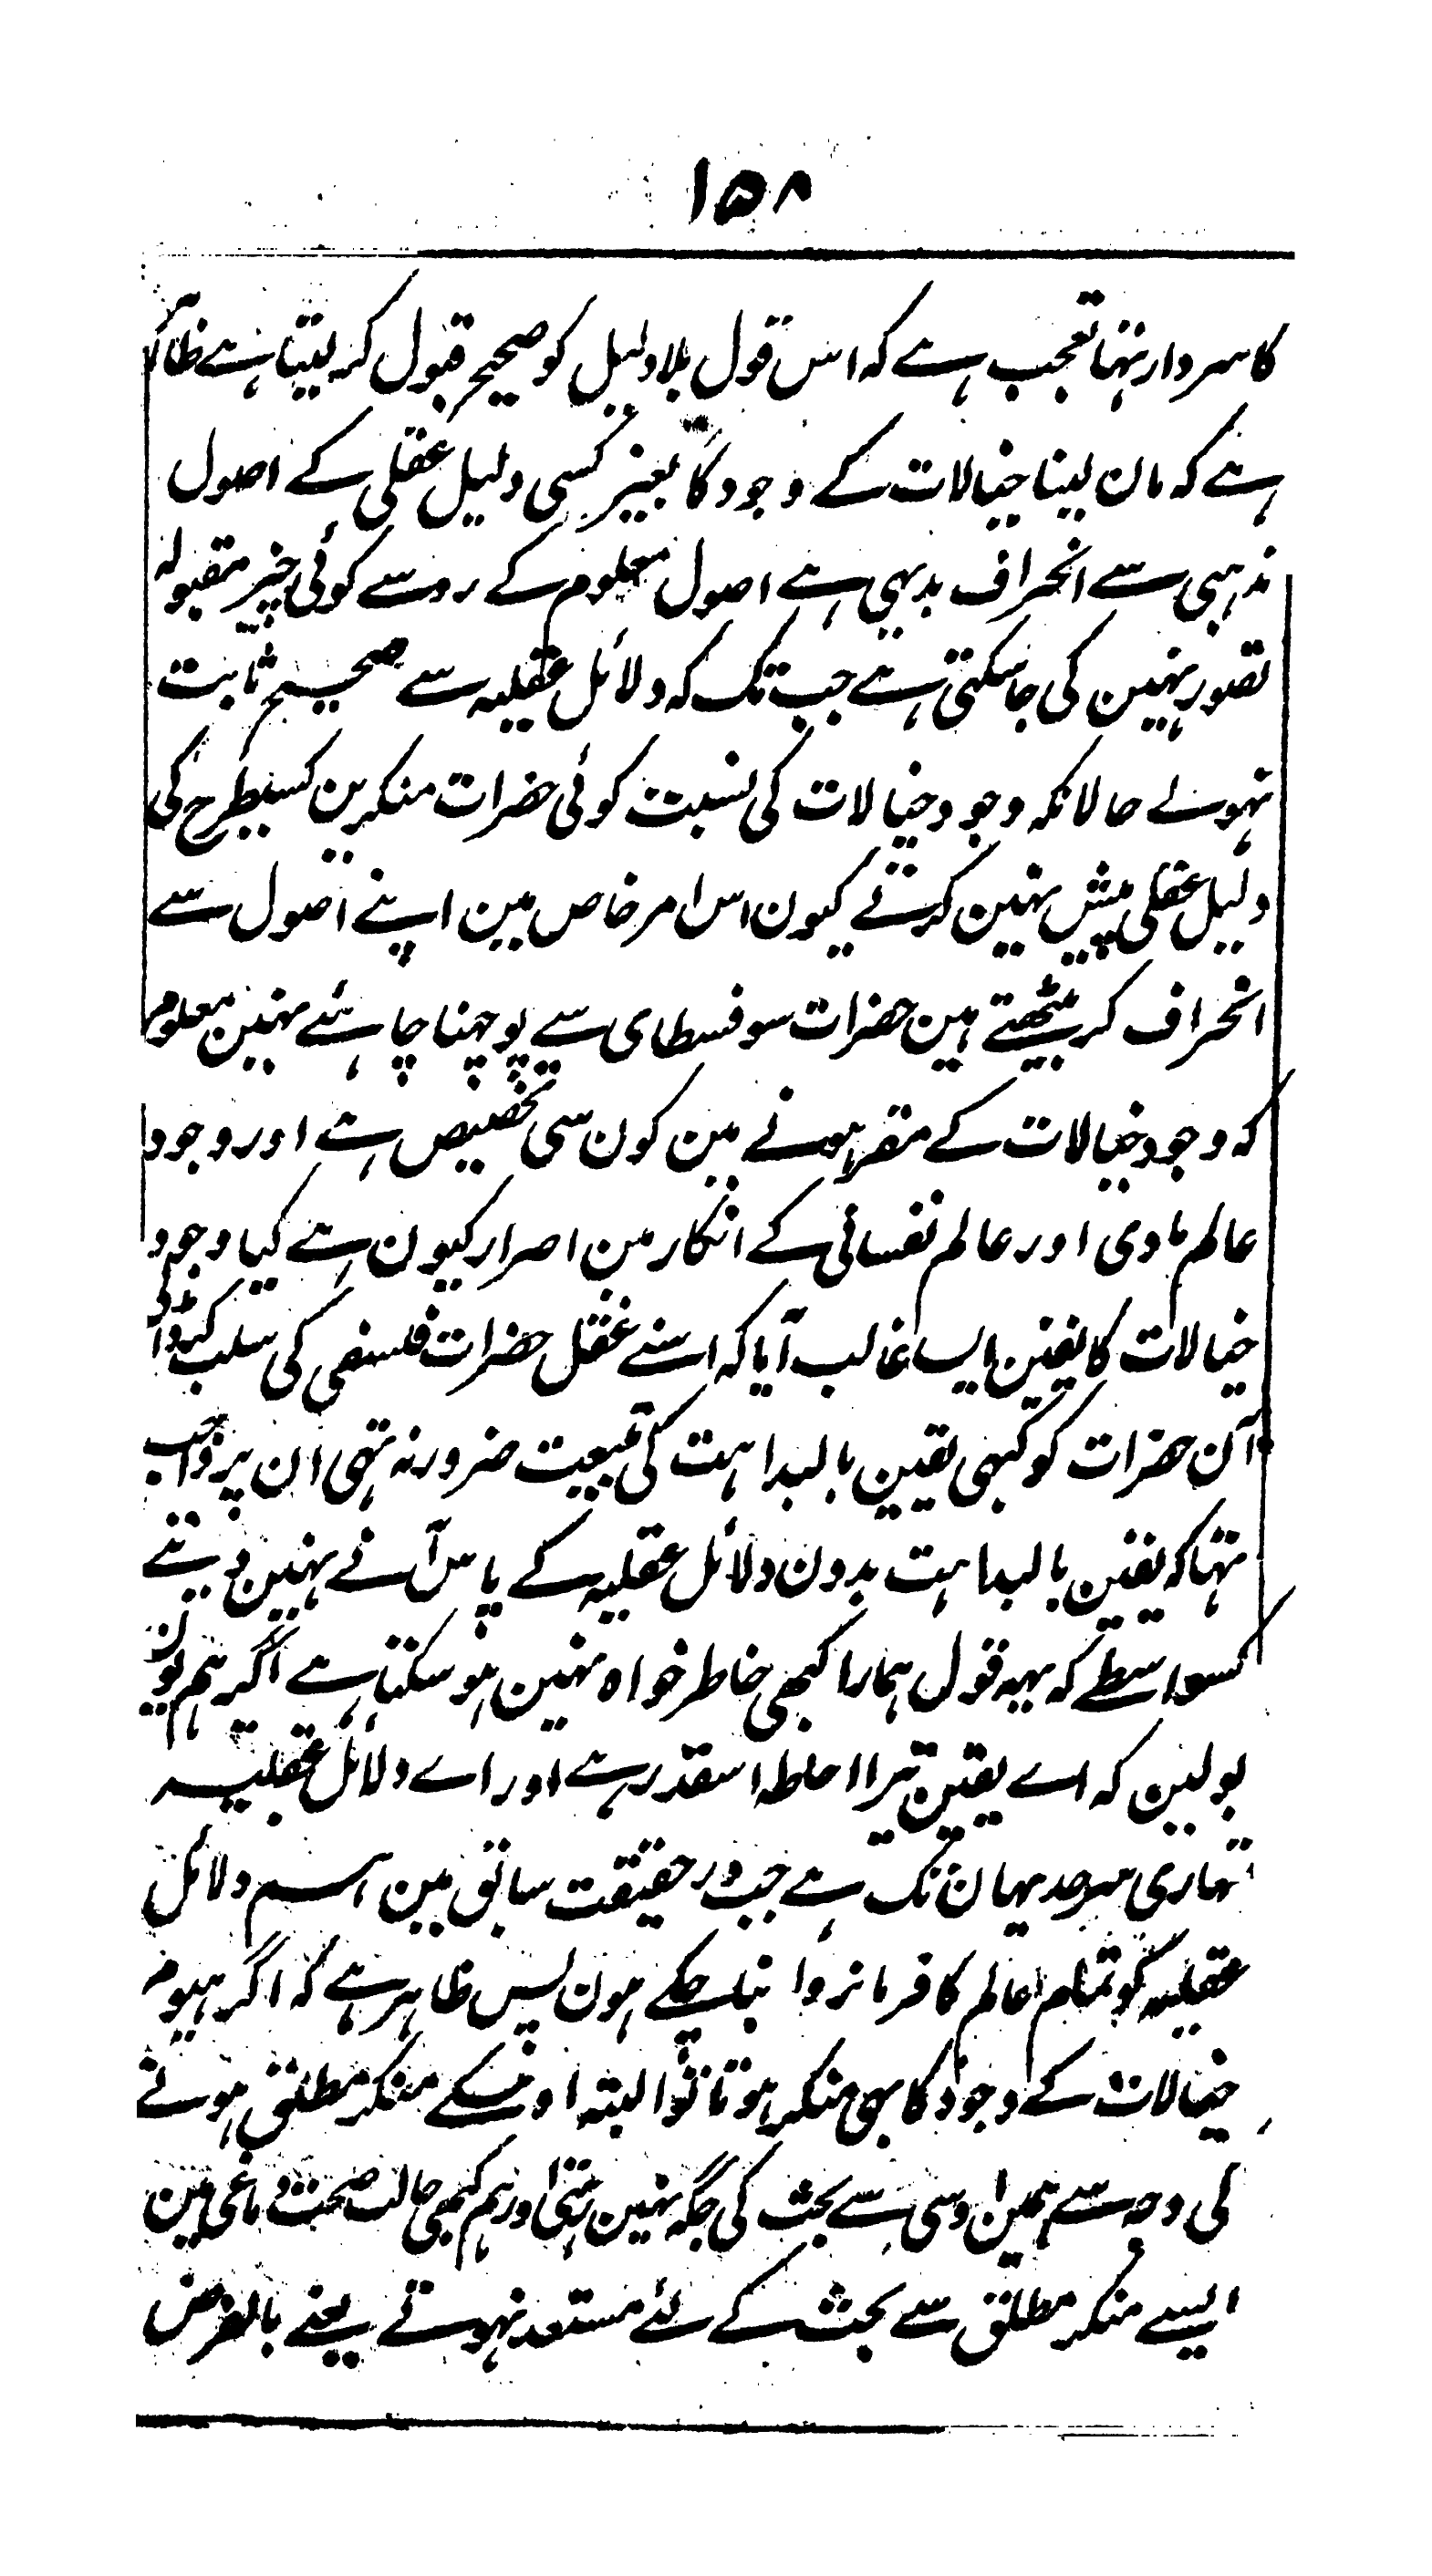 ۱۵۸
کا سردار تنہا تعجب ہے کہ اس قول بلا دلیل کو صحیح قبول کر لیتا ہے ظاہر
ہے کہ مان لینا خیالات کے وجود کا بغیر کسی دلیل عقلی کے اصول
مذہبی سے انحراف بدیہی ہے اصول معلوم کے رو سے کوئی چیز مقبولہ
تصور نہین کی جا سکتی ہے جب تک کہ دلائل عقلیہ سے صحیح ثابت
نہولے حالانکہ وجود خیالات کی نسبت کوئی حضرات منکرین کسیطرح کی
دلیل عقلی پیش نہین کرتے کیون اس امر خاص مین اپنے اصول سے
انحراف کر بیٹھتے ہین حضرات سوفسطای سے پوچہنا چاہئے نہین معلوم
کہ وجود خیالات کے مقر ہونے مین کون سی تخصیص ہے اور وجود
عالم مادی اور عالم نفسانی کے انکار مین اصرار کیون ہے کیا وجود
خیالات کا یقین ایسا غالب آیا کہ اسنے عقل حضرات فلسفی کی سلب کر ڈالی
ان حضرات کو کبہی یقین بالبداہت کی تبعیت ضرور نہ تہی ان پر واجب
تہا کہ یقین بالبداہت بدون دلائل عقلیہ کے پاس آنے نہین دیتے
کسواسطے کہ یہہ قول ہمارا کبھی خاطر خواہ نہین ہو سکتا ہے اگر ہم یون
بولین کہ اے یقین تیرا احاطہ اسقدر ہے اور اے دلائل عقلیہ
تمہاری سرحد یہان تک ہے جب در حقیقت سابق مین ہم دلائل
عقلیہ کو تمام عالم کا فرمانروا بنا چکے ہون پس ظاہر ہے کہ اگر ہیوم
خیالات کے وجود کا بھی منکر ہوتا تو البتہ اوسکے منکر مطلق ہونے
کی وجہ سے ہمین اوسی سے بحث کی جگہ نہین رہتی اور ہم کبھی حالت صحت دماغی مین
ایسے منکر مطلق سے بحث کے لئے مستعد نہوتے یعنے بالفرض